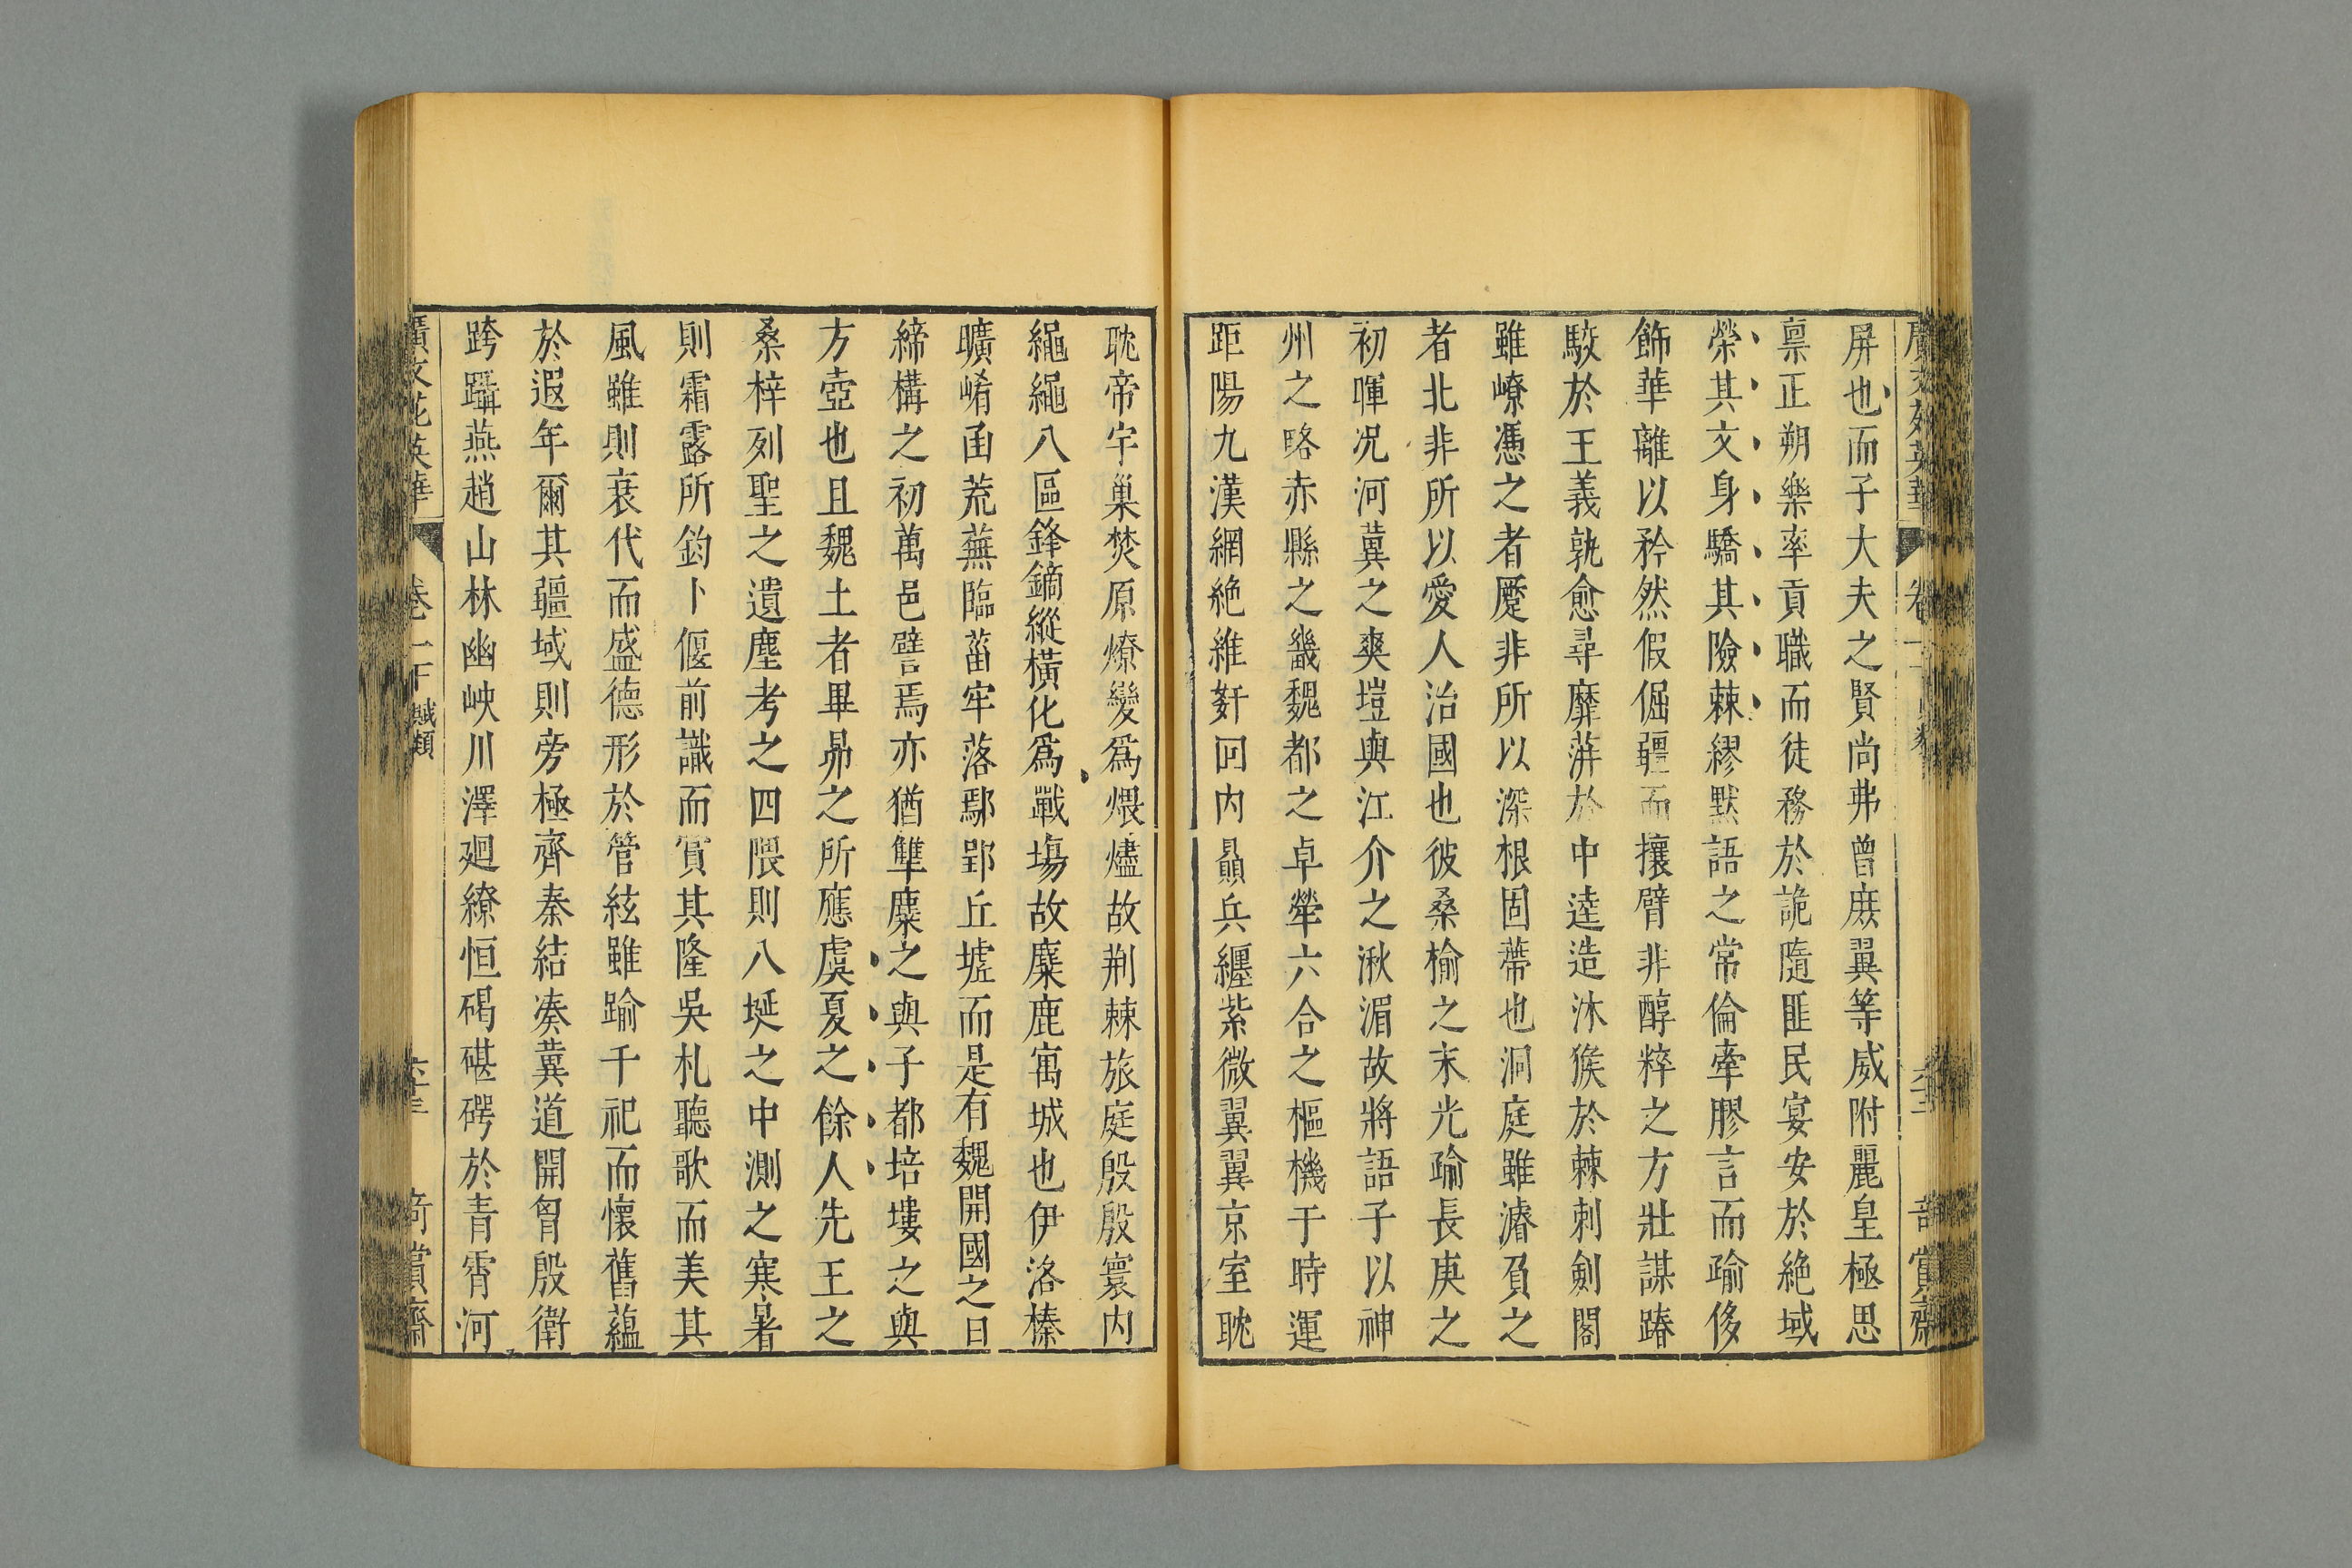 廣文苑英華 卷一 賦類 六十二 奇賞齋
屏也而子大夫之賢尚弗曾庶翼等威附麗皇極思
禀正朔樂率貢職而徒務於詭隨匪民宴安於絶域
榮其文身驕其險棘繆默語之常倫牽膠言而踰侈
飾華離以矜然假倔疆而攘臂非醇粹之方壯謀踳
駮於王義孰愈尋靡蓱於中逵造沐猴於棘刺劍閣
雖嶛憑之者蹷非所以深根固蒂也洞庭雖濬負之
者北非所以愛人治國也彼桑榆之末光踰長庚之
初暉况河冀之爽塏與江介之湫湄故將語子以神
州之略赤縣之畿魏都之卓犖六合之樞機于時運
距陽九漢網絶維姧回内贔兵纏紫微翼翼京室耽
耽帝宇巢焚原燎變爲煨燼故荆棘旅庭殷殷寰内
繩繩八區鋒鏑縱横化爲戰場故麋鹿寓城也伊洛榛
曠崤函荒蕪臨菑牢落鄢郢丘墟而是有魏開國之日
締構之初萬邑譬焉亦猶犨麋之與子都培塿之與
方壺也且魏土者畢昴之所應虞夏之餘人先王之
桑梓列聖之遺塵考之四隈則八埏之中測之寒暑
則霜露所鈞卜偃前識而賞其隆吳札聽歌而美其
風雖則衰代而盛德形於管絃雖踰千祀而懷舊蘊
於遐年爾其疆域則旁極齊秦結凑冀道開胷殷衛
跨躡燕趙山林幽岟川澤廻繚恒碣碪磍於青霄河
廣文苑英華 卷一 賦類 六十三 奇賞齋